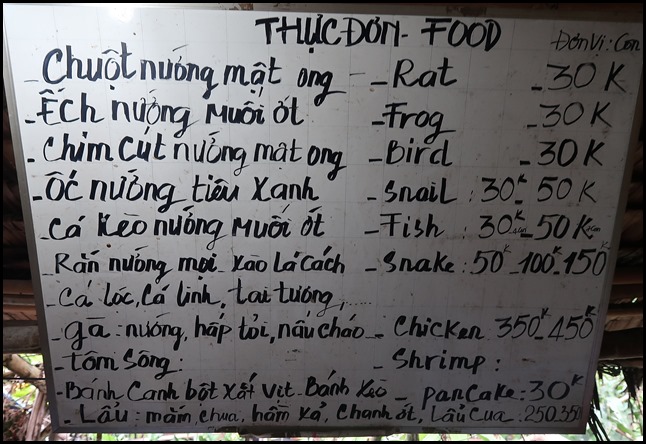 THỰC ĐƠN - FOOD ĐơnVị: Con
- Chuột nướng mật ong - - Rat - 30 K
- Ếch nướng muối ớt - Frog - 30 K
- Chim Cút nướng mật ong - Bird - 30 K
- Ốc nướng tiêu xanh - Snail : 30K - 50 K
- Cá Kèo nướng muối ớt - Fish : 30K - 50 K
- Rắn nướng mọi xào Lá Cách - Snake : 50K - 100K - 150K
- Cá lóc, Cá linh, tai tượng, .....
- gà : nướng, hấp tỏi, nấu cháo - Chicken 350K - 450K
- tôm sông : - Shrimp :
- Bánh Canh bột xắt Vịt - Bánh Xèo - pancake : 30K
- Lẩu : mắm, chua, hầm xả, Chanh ớt, Lẩu Cua : 250.350